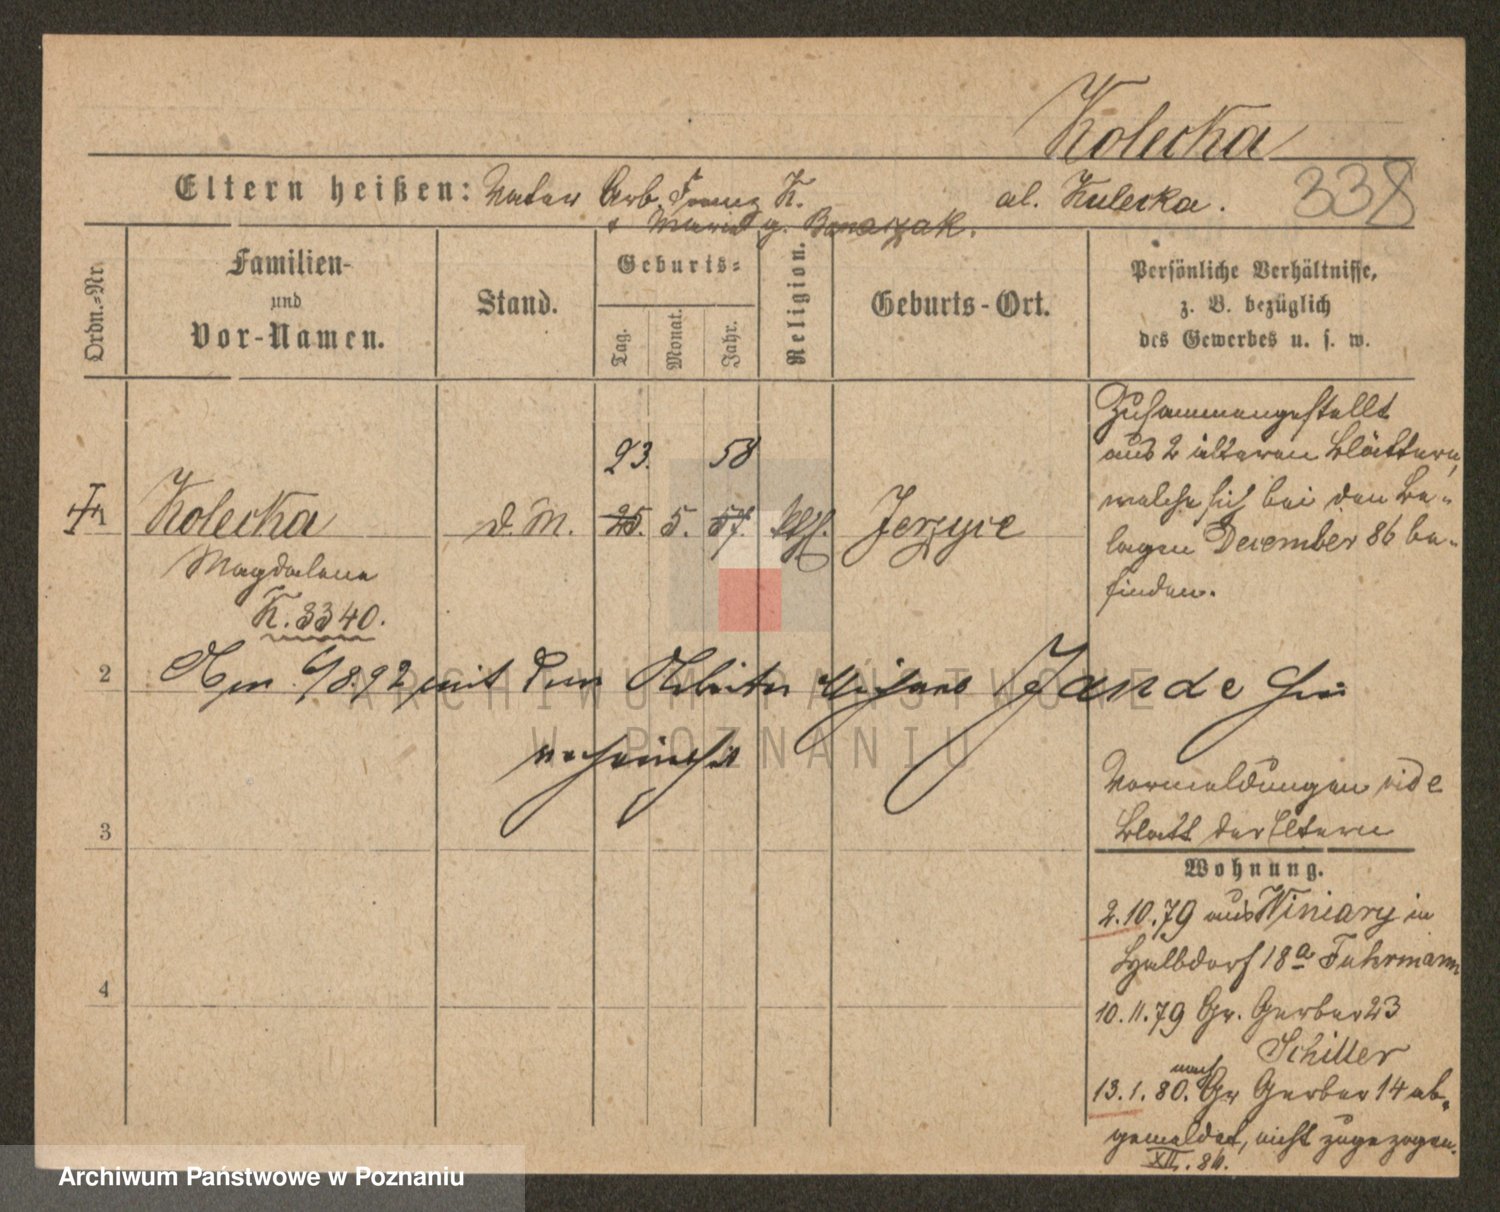 Kolecka
Eltern heißen: Vater Arb. Franz K. al. Kulecka. 338
u Maria g. Banaszak.
Ordn.=Nr.
Familien-
und
Vor-Namen.
Stand.
Geburts=
Tag.
Monat.
Jahr.
Religion.
Geburts-Ort.
Persönliche Verhältnisse,
z. B. bezüglich
des Gewerbes u. s. w.
Zusammengestellt
aus 2 älteren Blättern,
welche sich bei den Be-
lagen December 86 be-
finden.
23. 58
1 Kolecka d. M. 25. 5. 57. kth. Jerzyce
Magdalena
K. 3340.
2 Am 6/8.92 mit dem Arbeiter Jande hier
verheirathet
Vormeldungen vide
Blatt der Eltern
3
Wohnung.
2.10.79 aus Winiary in
Halbdorf 18a Fuhrmann
4
10.11.79 Gr. Gerber 23
Schiller
13.1.80. nach Gr Gerber 14 ab-
gemeldet, nicht zugezogen.
XII. 84.
ARCHIWUM PAŃSTWOWE
W POZNANIU
Archiwum Państwowe w Poznaniu